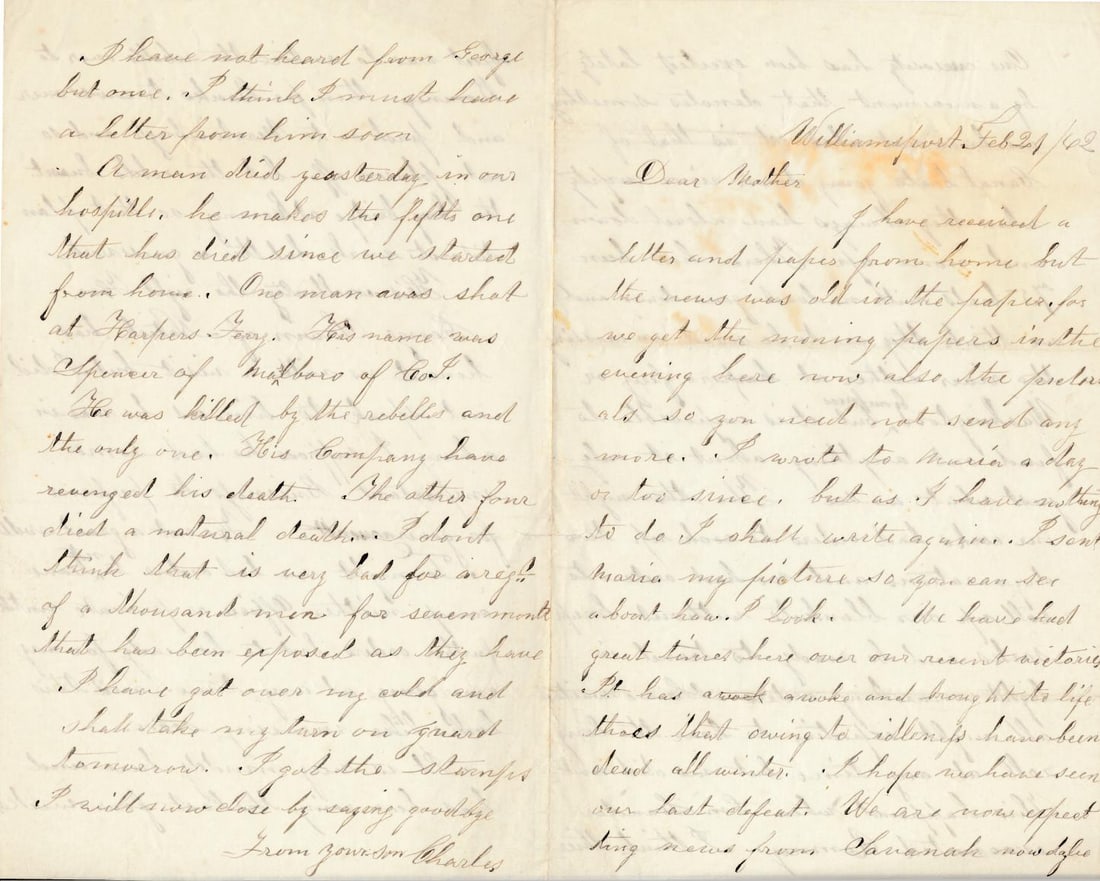 Williamsport. Feb 21 /62
Dear Mother
I have received a
letter and paper from home but
the news was old in the paper. for
we get the moning papers in the
evening here now also the pictori
als so you need not send any
more. I wrote to Maria a day
or too since. but as I have nothing
to do I shall write again. I sent
Maria my picture so you can see
about how I look. We have had
great times here over our recent victories
It has awoke and brought to life
thoes that owing to idleness have been
dead all winter. I hope we have seen
our last defeat. We are now expect
ting news from Savanah
I have not heard from George
but once. I think I must have
a letter from him soon
A man died yeasterday in our
hospitle. he makes the fyfth one
that has died since we started
from home. One man was shot
at Harpers Ferry. His name was
Spencer of Malboro of Co I.
He was killed by the rebelles and
the only one. His Company have
revenged his death. The other four
died a natural death. I dont
think that is very bad for a regt
of a thousand men for seven month
that has been exposed as they have
I have got over my cold and
shall take my turn on guard
tomorrow. I got the stamps
I will now close by saying goodbye
From your son Charles